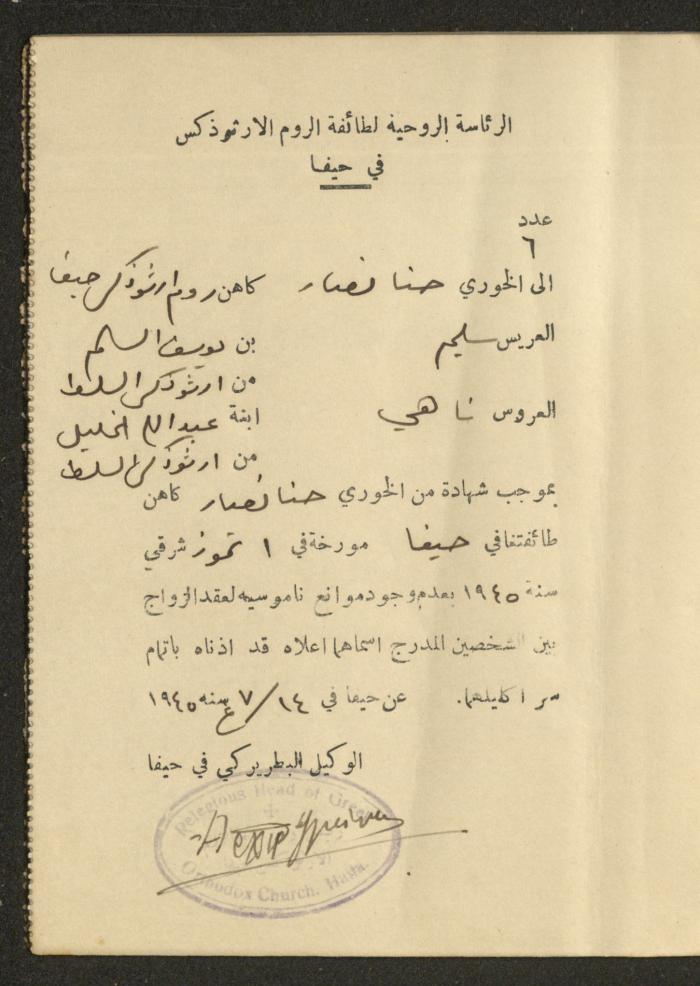 الرئاسة الروحية لطائفة الروم الارثوذكس
في حيفا
عدد
٦
الى الخوري حنا نصار كاهن روم ارثوذكس حيفا
العريس سليم بن يوسف السلم
من ارثوذكس السلط
العروس ناهي ابنة عبدالله الخليل
من ارثوذكس السلط
بموجب شهادة من الخوري حنا نصار كاهن
طائفتنا في حيفا مورخة في ١ تموز شرقي
سنة ١٩٤٥ بعدم وجود موانع ناموسيه لعقد الزواج
بين الشخصين المدرج اسماهما اعلاه قد اذناه باتمام
سر اكليلهما. عن حيفا في ١٤/٧ غ سنه ١٩٤٥
الوكيل البطريركي في حيفا
Relegious Head of Greek
Orthodox Church, Haifa.